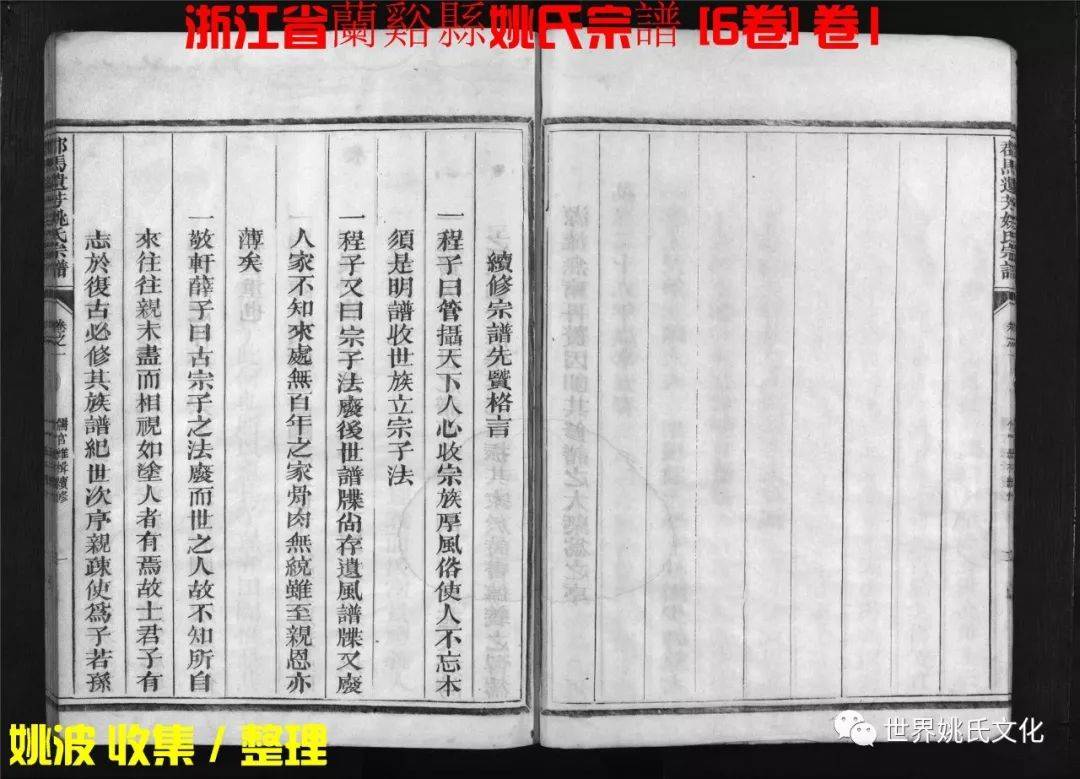 浙江省蘭谿縣姚氏宗譜 [6卷] 卷1
續修宗譜先賢格言
一程子曰管攝天下人心收宗族厚風俗使人不忘本
須是明譜收世族立宗子法
一程子又曰宗子法廢後世譜牒尙存遺風譜牒又廢
人家不知來處無百年之家骨肉無統雖至親恩亦
薄矣
一敬軒薛子曰古宗子之法廢而世之人故不知所自
來往往親未盡而相視如塗人者有焉故士君子有
志於復古必修其族譜紀世次序親疎使爲子若孫
馬遺芳姚氏宗譜
卷之一
姚波 收集 / 整理
世界姚氏文化